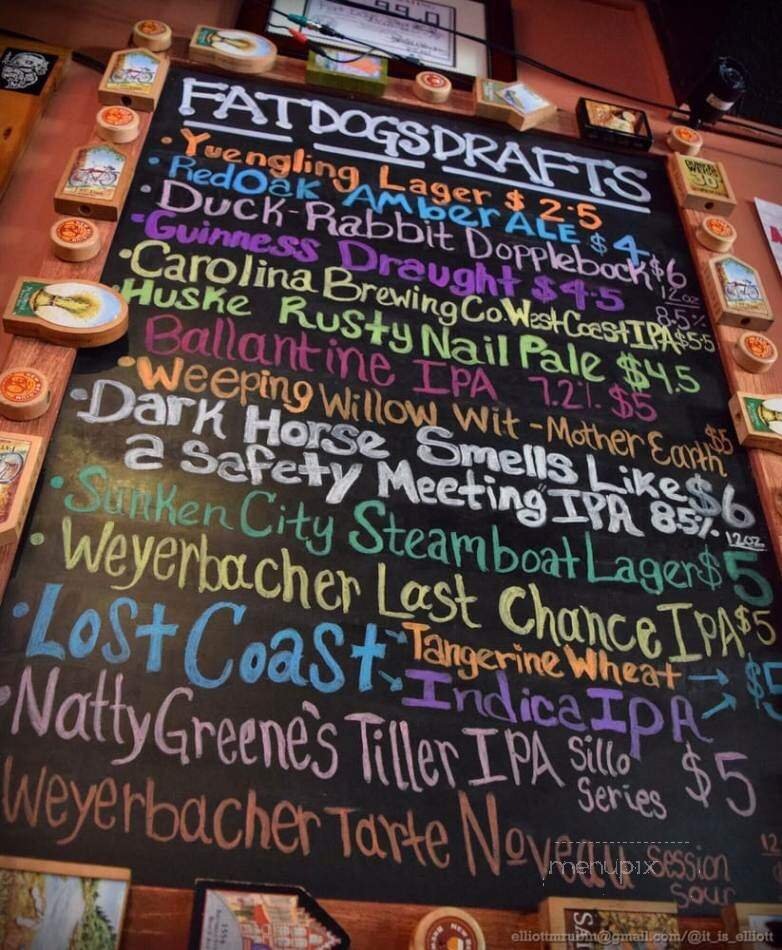 99.0
FAT DOGS DRAFTS
• Yuengling Lager $ 2.5
• RedOak AmberALE $4
• Duck-Rabbit Dopplebock $6
12oz
8.5%
• Guinness Draught $4.5
• Carolina Brewing Co. West Coast IPA $5.5
Huske Rusty Nail Pale $4.5
Ballantine IPA 7.2% $5
• Weeping Willow Wit - Mother Earth $5
• Dark Horse Smells Like
a Safety Meeting" IPA 8.5% $6
12oz
• Sunken City Steamboat Lager $5
• Weyerbacher Last Chance IPA $5
• Lost Coast Tangerine Wheat → $5
Indica IPA
• Natty Greene's Tiller IPA Sillo Series $5
Weyerbacher Tarte Noveau Session Sour
12
menupix
elliottmrubin@gmail.com/@it_is_elliott